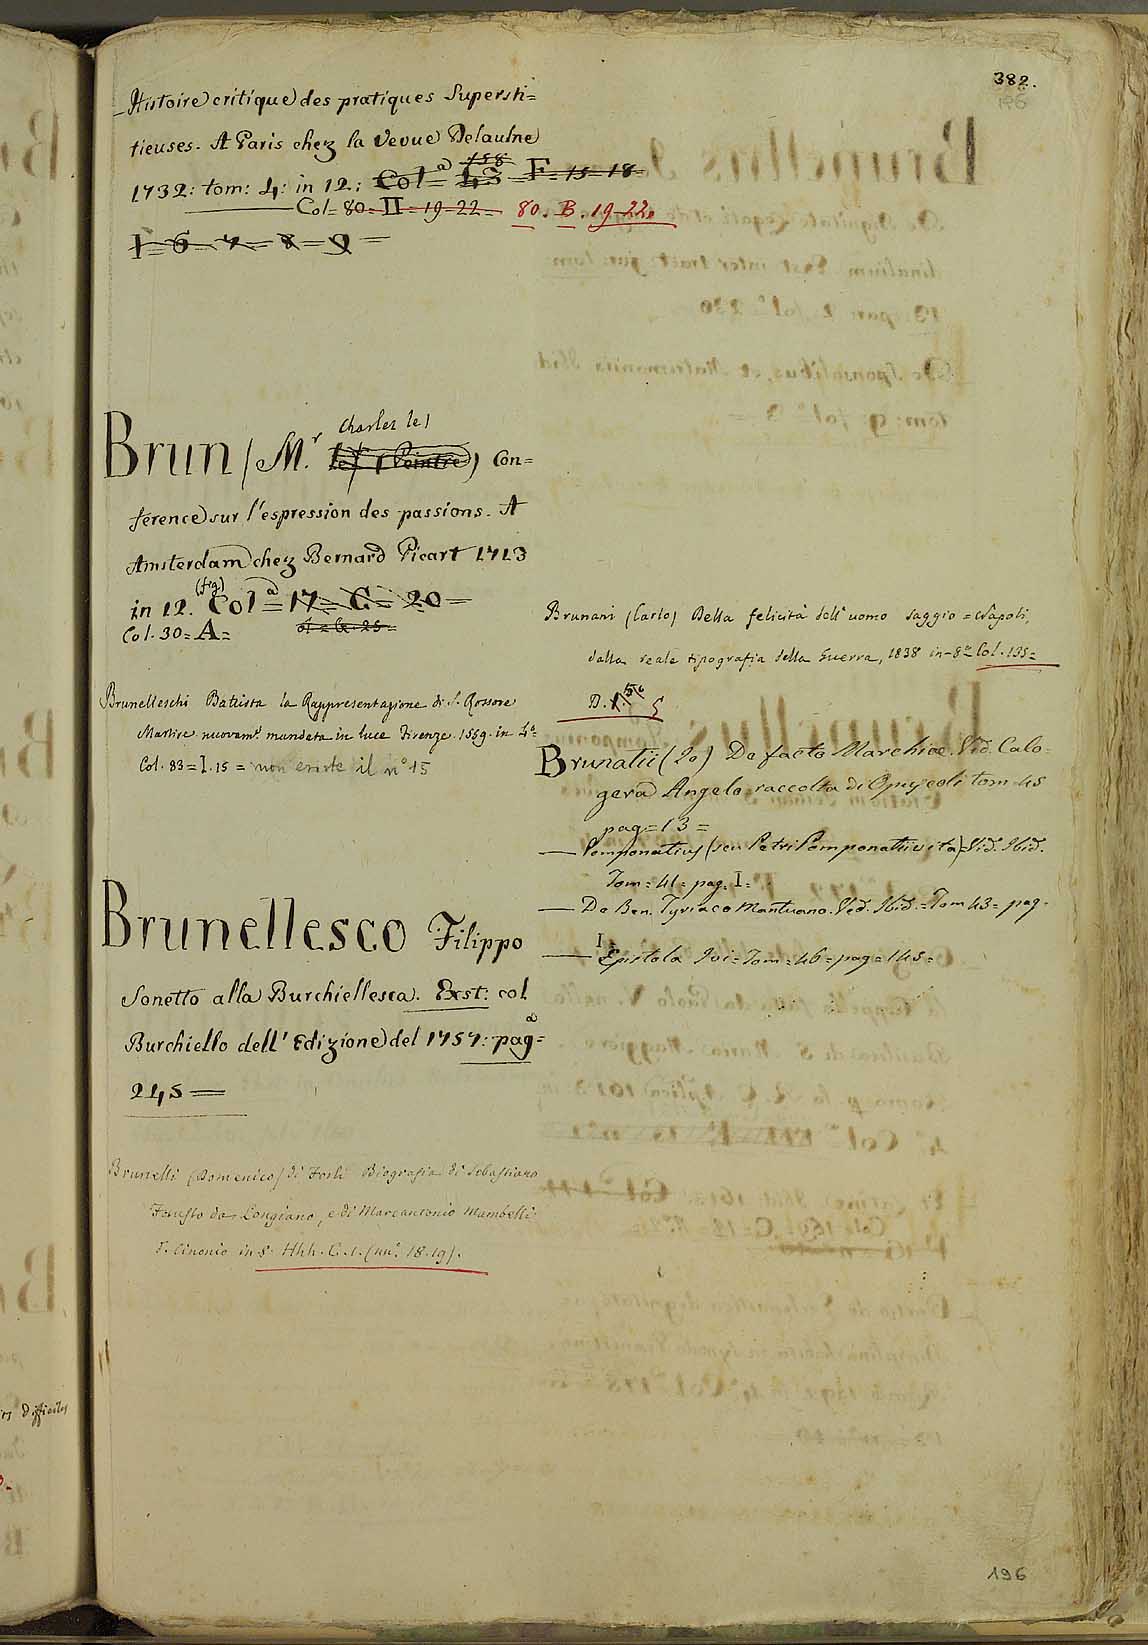 382.
196
— Histoire critique des pratiques Supersti=
tieuses. A Paris chez la Veuve Delaulne
158
1732: tom: 4: in 12; Col.ª 43 = F = 15 = 18 =
Col = 80 = II = 19 - 22 = 80. B. 19-22.
I = 6 = 7 = 8 = 9 =
Charles le)
Brun (M.r le) (Peintre) Con=
ference sur l'espression des passions. A
Amsterdam chez Bernard Picart 1713
(fig)
in 12. Colª = 17 = C = 20 =
Col. 30 = A =
Brunelleschi Battista la Rappresentazione di S. Rossore
Martire nuovamt. mandata in luce Firenze. 1559. in 4º
Col. 83 = I. 15 = non esiste il nº 15
Brunellesco Filippo
Sonetto alla Burchiellesca. Exst: col
Burchiello dell' Edizione del 1757: pagª =
245 =
Brunelli (Domenico) di Forlì Biografia di Sebastiano
Fausto da Longiano, e di Marcantonio Mambelli
d. Cinonio in 8: Hhh. C. 1. (nni. 18. 19).
Brunani (Carlo) Della felicità dell' uomo saggio = Napoli,
dalla reale tipografia della Guerra, 1838 in-8º Col. 135=
D. 5
Brunatii (Jo) De facto Marchiæ. Vid. Calo-
gerà Angelo raccolta di Opuscoli tom 45
pag = 13 =
— Pomponatius (seu Petri Pomponatii vita) Vid. Ibid.
Tom = 41 = pag. I =
— De Ben. Tyriaco Mantuano. Ved. Ibid. = Tom 43 = pag.
I =
— Epistola Ivi = Tom = 46 = pag = 145 =
difficiles
196